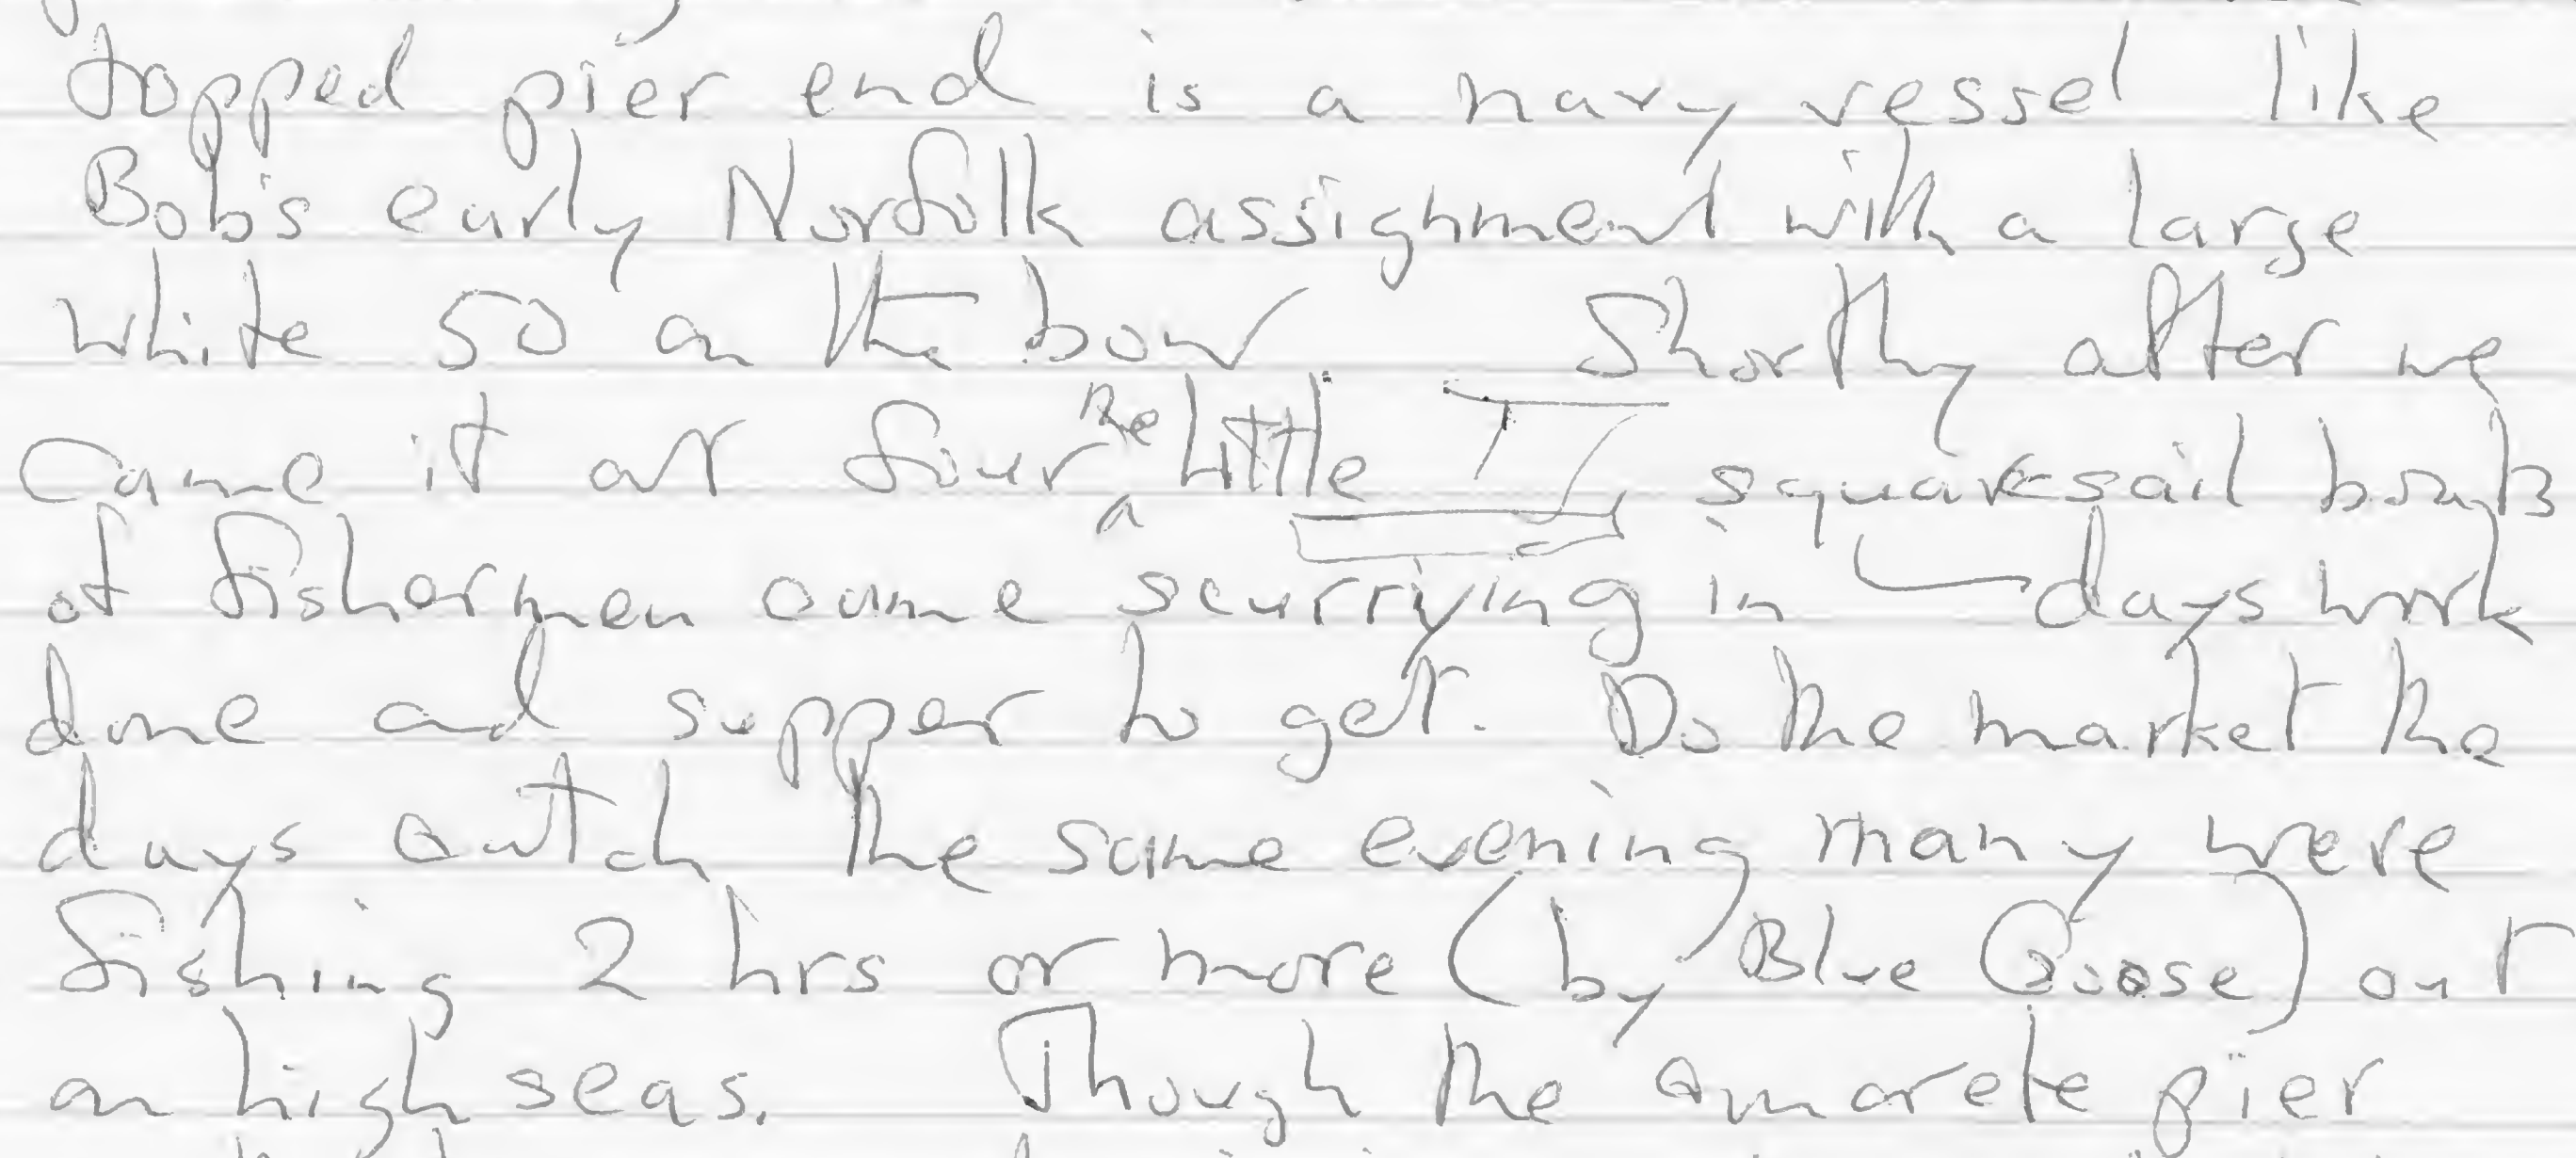 topped pier end is a navy vessel like
Bob's early Norfolk assignment with a large
white 50 on the bow. Shortly after we
came it at four the little squaresail boats
of fishermen came scurrying in days work
done and supper to get. Do the market the
days catch the same evening many were
fishing 2 hrs or more (by Blue Goose) out
on high seas. Though the concrete pier